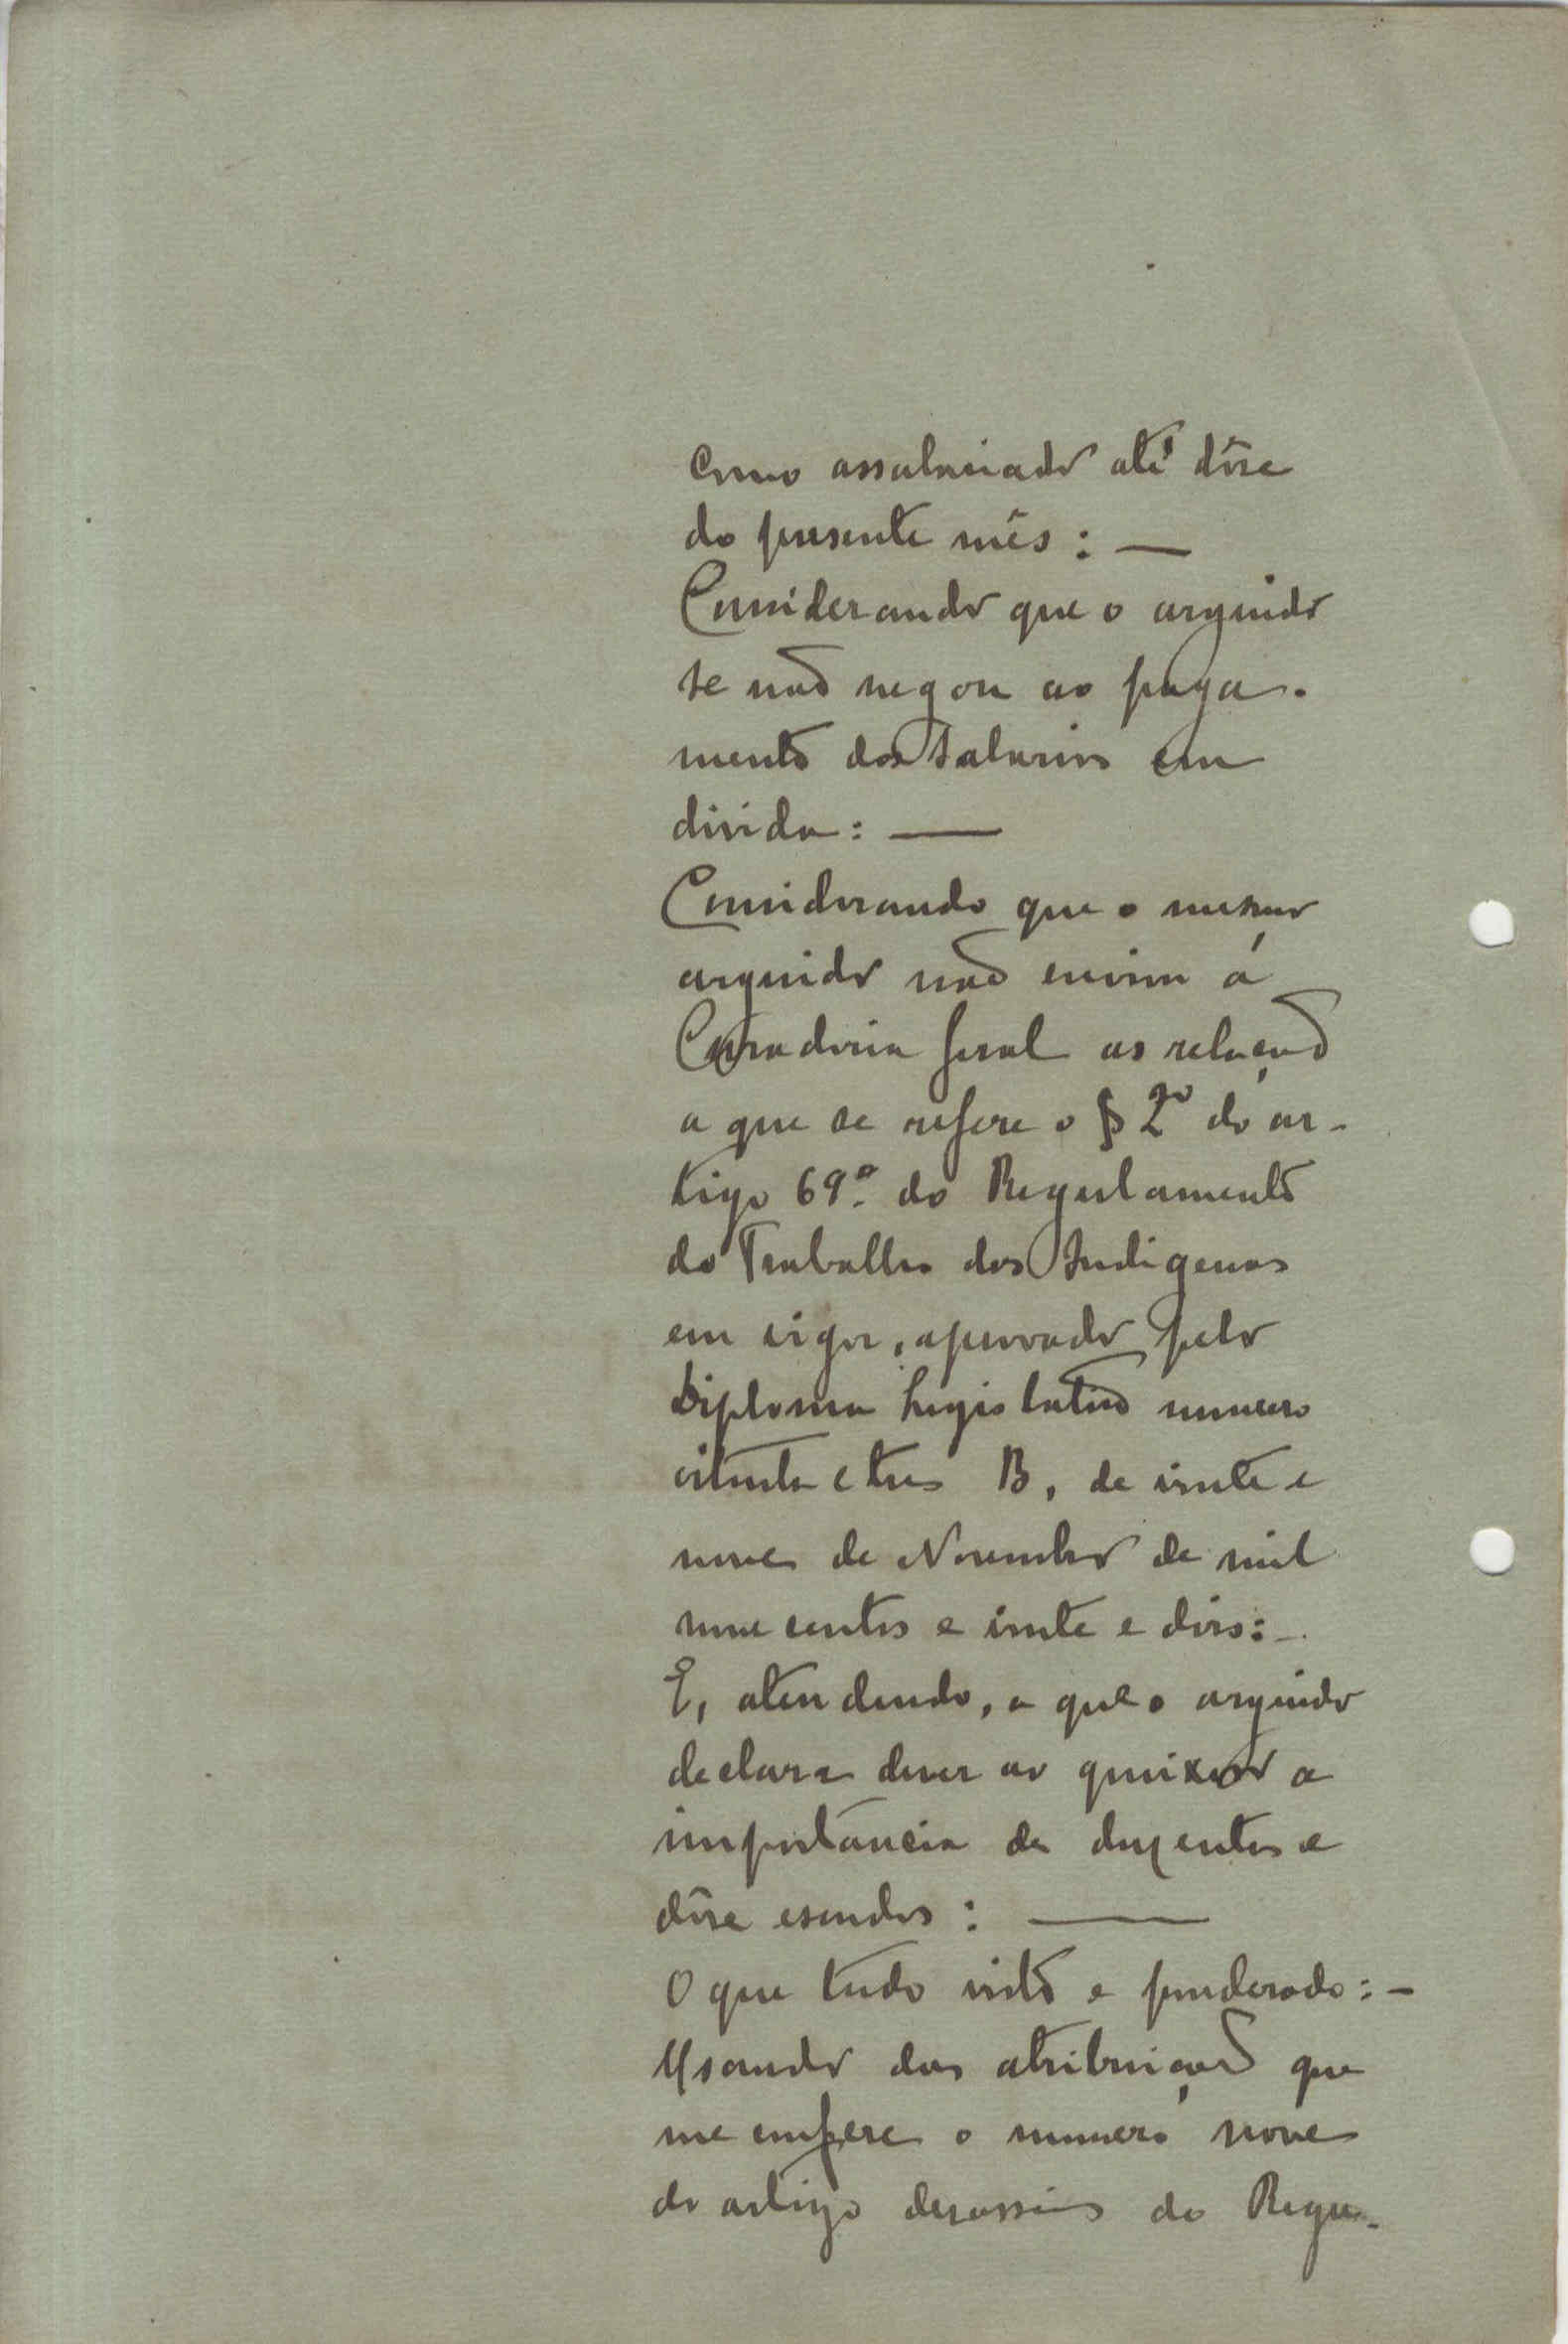 como assalariado até dôse
do presente mês: —
Considerando que o arguido
se não negou ao paga-
mento dos salarios em
divida: —
Considerando que o mesmo
arguido não enviou á
Curadoria Geral as relações
a que se refere o § 2º do ar-
tigo 69º do Regulamento
do Trabalho dos Indigenas
em vigor, aprovado pelo
Diploma Legislativo numero
oitenta e tres B, de vinte e
nove de Novembro de mil
nove centos e vinte e dois: —
E, atendendo, a que o arguido
declara dever ao queixoso a
importância de duzentos e
dôse escudos: —
O que tudo visto e ponderado: —
Usando das atribuições que
me confere o numero nove
do artigo deasseis do Regu-